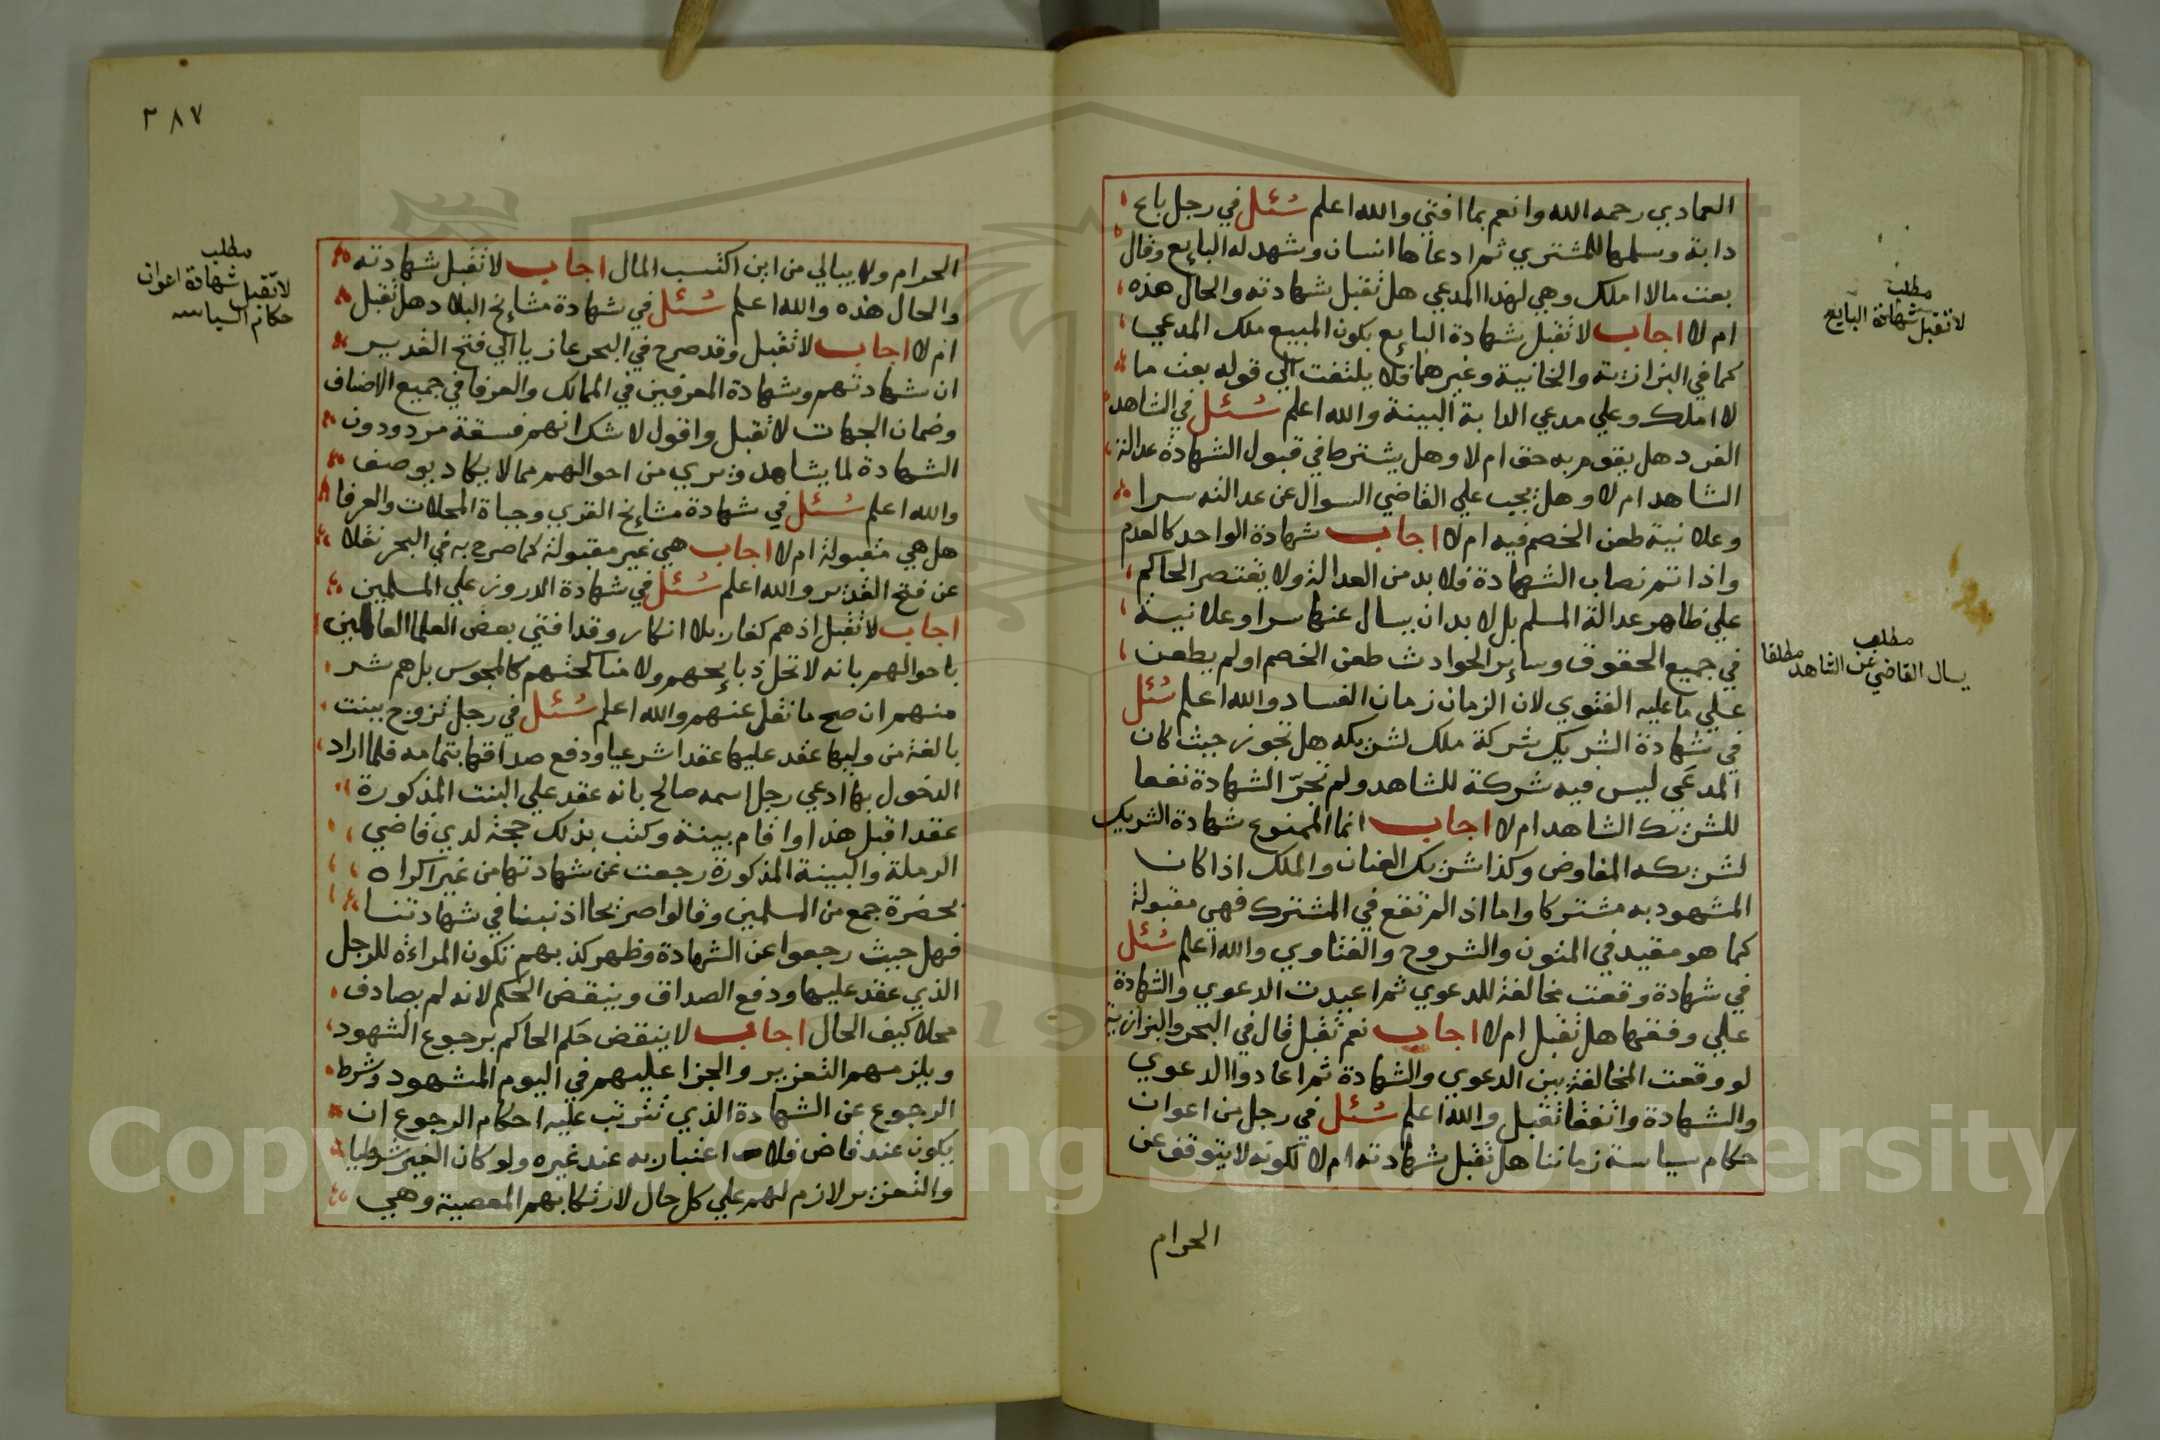 العمادي رحمه الله وانعم بما افتي والله اعلم سُئل في رجل باع
دابة وسلمها للمشتري ثم ادعاها انسان وشهد له البايع وقال
بعت مالا املك وهي لهذا المدعي هل تقبل شهادته والحال هذه
ام لا اجاب لا تقبل شهادة البايع بكون المبيع ملك المدعي
كما في البزازية والخانية وغيرهما فلا يلتفت الي قوله بعت ما
لا املك وعلي مدعي الدابة البينة والله اعلم سُئل في الشاهد
الفرد هل يقوم به حق ام لا وهل يشترط في قبول الشهادة عدالة
الشاهد ام لا وهل يجب علي القاضي السوال عن عدالته سرا
وعلانية طعن الخصم فيه ام لا اجاب شهادة الواحد كالعدم
واذا تم نصاب الشهادة فلا بد من العدالة ولا يقتصر الحاكم
علي ظاهر عدالة المسلم بل لا بد ان يسال عنها سرا وعلانية
في جميع الحقوق وساير الحوادث طعن الخصم او لم يطعن
علي ما عليه الفتوي لان الزمان زمان الفساد والله اعلم سُئل
في شهادة الشريك بشركة ملك لشريكه هل تجوز حيث كان
المدعي ليس فيه شركة للشاهد ولم تجرّ الشهادة نفعا
للشريك الشاهد ام لا اجاب انما الممنوع شهادة الشريك
لشريكه المفاوض وكذا شريك العنان والملك اذا كان
المشهود به مشتركا واما اذا لم تقع في المشترك فهي مقبولة
كما هو مقيد في المتون والشروح والفتاوي والله اعلم سُئل
في شهادة وقعت مخالفة للدعوي ثم اعيدت الدعوي والشهادة
علي وفقها هل تقبل ام لا اجاب نعم تقبل قال في البحر والبزازية
لو وقعت المخالفة بين الدعوي والشهادة ثم اعادوا الدعوي
والشهادة واتفقا تقبل والله اعلم سُئل في رجل من اعوان
حكام سياسة زماننا هل تقبل شهادته ام لا لكونه لا يتوقف عن
الحرام
مطلب
لا تقبل شهادة البايع
مطلب
يسال القاضي عن الشاهد مطلقا
٢٨٧
الحرام ولا يبالي من اين اكتسب المال اجاب لا تقبل شهادته
والحال هذه والله اعلم سُئل في شهادة مشايخ البلاد هل تقبل
ام لا اجاب لا تقبل وقد صرح في البحر عازيا الي فتح القدير
ان شهادتهم وشهادة المعرفين في الممالك والعرفا في جميع الاصناف
وضمان الجهات لا تقبل واقول لا شك انهم فسقة مردودون
الشهادة لما يشاهد ويري من احوالهم مما لا يكاد يوصف
والله اعلم سُئل في شهادة مشايخ القري وجباة المحلات والعرفا
هل هي مقبولة ام لا اجاب هي غير مقبولة كما صرح به في البحر نقلا
عن فتح القدير والله اعلم سُئل في شهادة الدروز علي المسلمين
اجاب لا تقبل اذ هم كفار بلا انكار وقد افتي بعض العلما العالمين
باحوالهم بانه لا تحل ذبايحهم ولا مناكحتهم كالمجوس بل هم شر
منهم ان صح ما نقل عنهم والله اعلم سُئل في رجل تزوج ببنت
بالغة من وليها عقد عليها عقدا شرعيا ودفع صداقها بتمامه فلما اراد
الدخول بها ادعي رجل اسمه صالح بانه عقد علي البنت المذكورة
عقدا قبل هذا واقام بينة وكتب بذلك حجة لدي قاضي
الرملة والبينة المذكورة رجعت عن شهادتها من غير اكراه
بحضرة جمع من المسلمين وقالوا صريحا اذنبنا في شهادتنا
فهل حيث رجعوا عن الشهادة وظهر كذبهم تكون المراءة للرجل
الذي عقد عليها ودفع الصداق وينقض الحكم لانه لم يصادف
محلا كيف الحال اجاب لا ينقض حكم الحاكم برجوع الشهود
ويلزمهم التعزير والجزا عليهم في اليوم المشهود وشرط
الرجوع عن الشهادة الذي تترتب عليه احكام الرجوع ان
يكون عند قاض فلا اعتبار به عند غيره ولو كان الغير شرطيا
والتعزير لازم لهم علي كل حال لارتكابهم المعصية وهي
مطلب
لا تقبل شهادة اعوان
حكام السياسه
Copyright © King Saud University